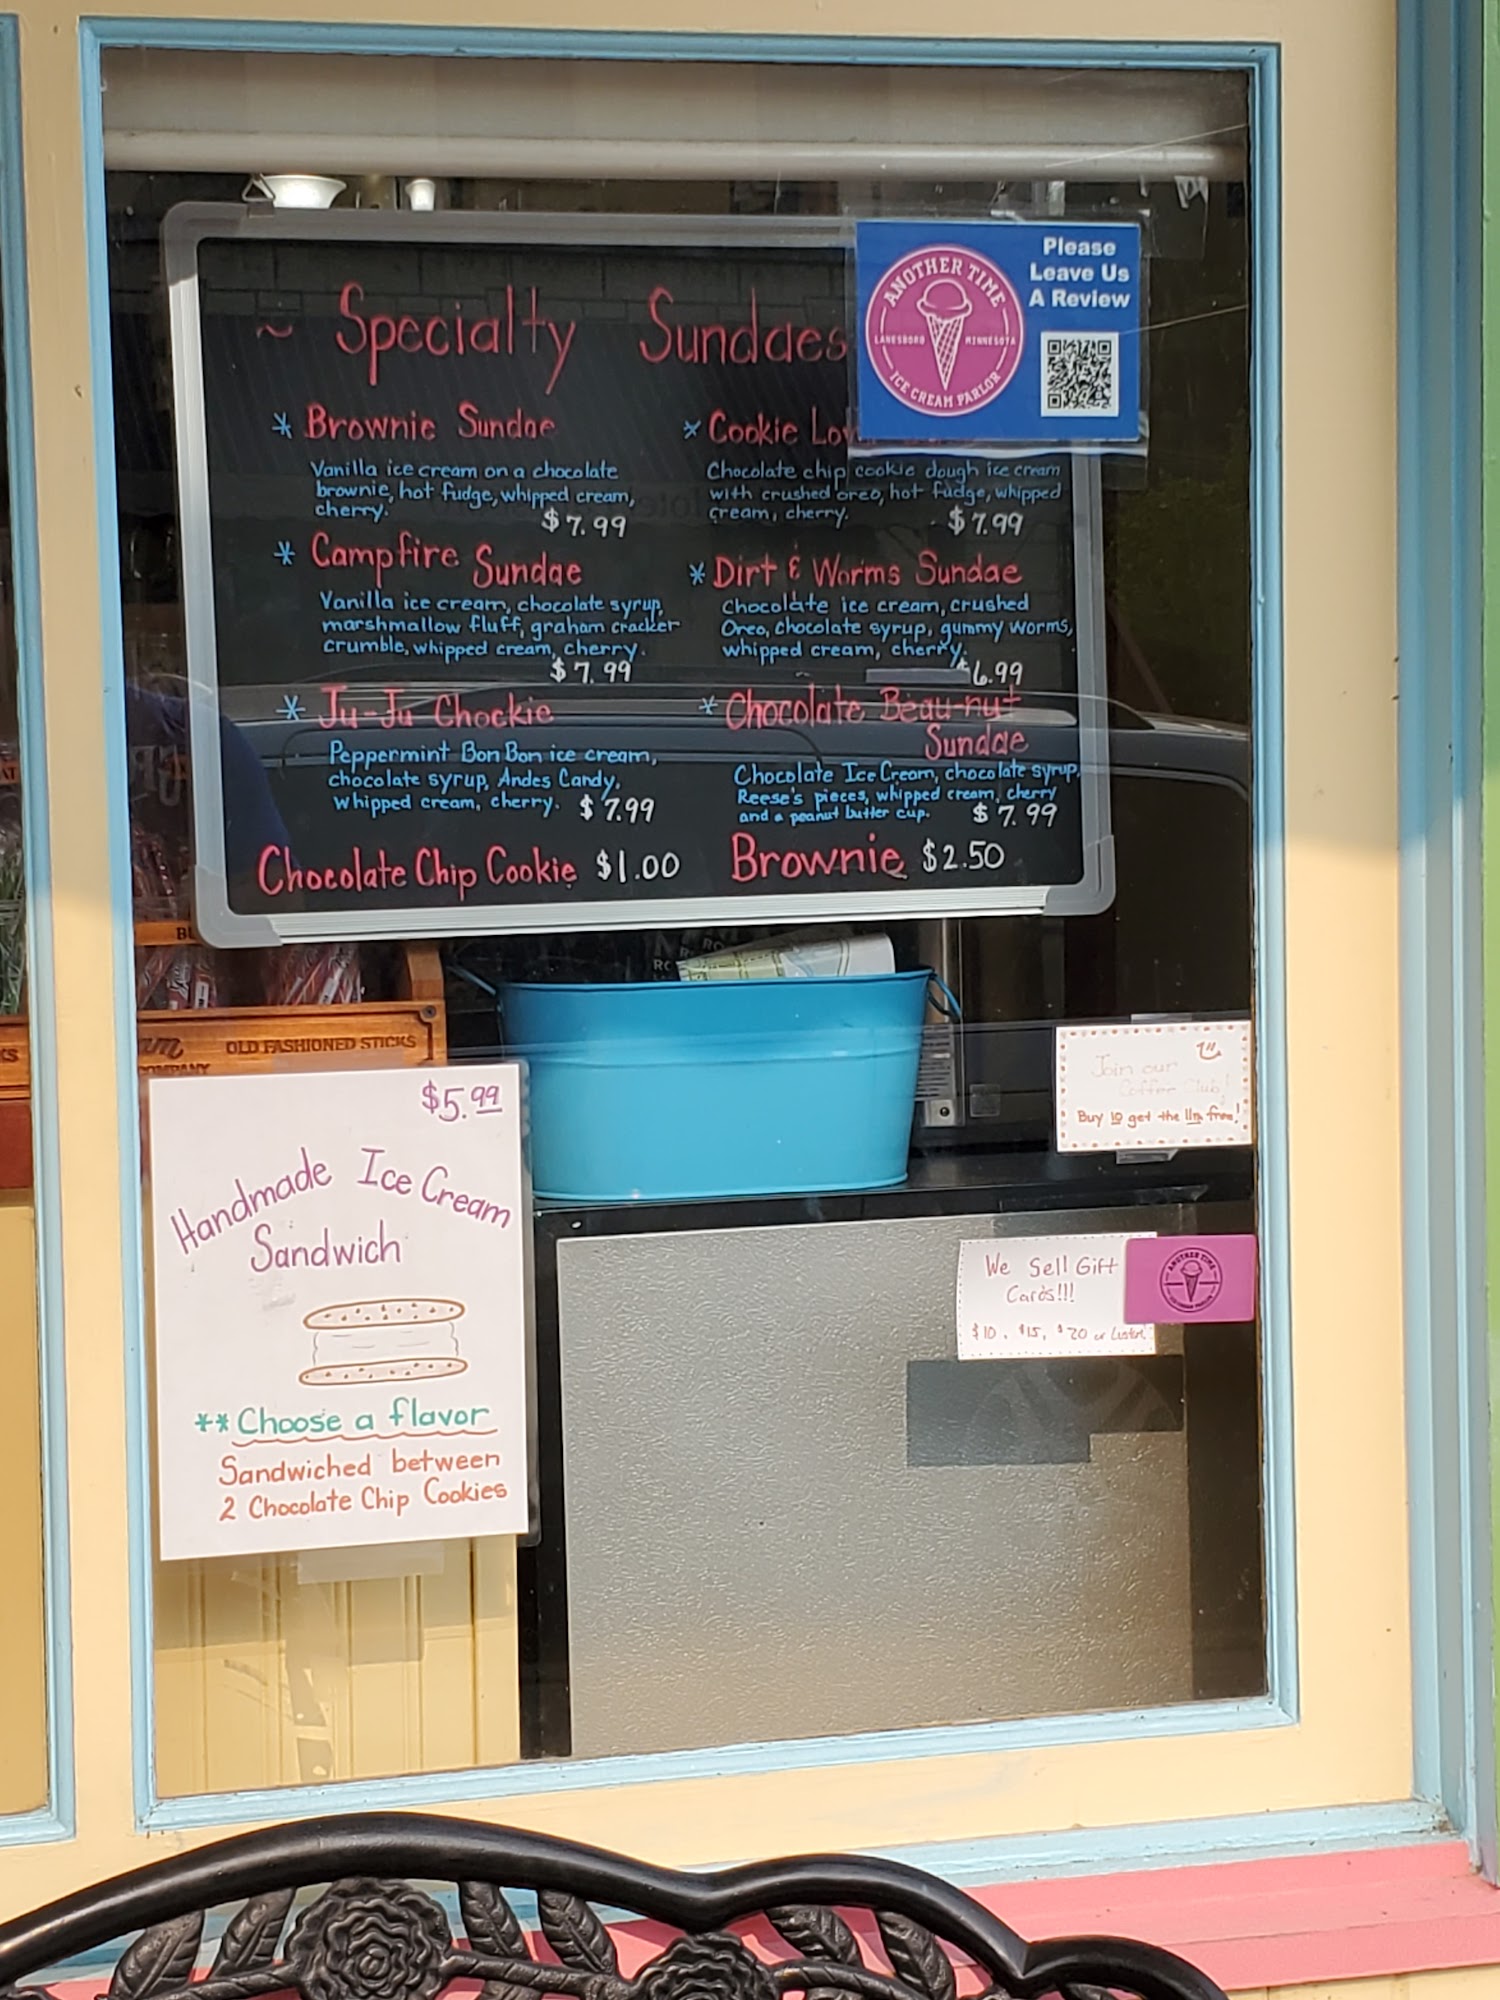 ~ Specialty Sundaes
* Brownie Sundae
Vanilla ice cream on a chocolate
brownie, hot fudge, whipped cream,
cherry.
$7.99
* Campfire Sundae
Vanilla ice cream, chocolate syrup,
marshmallow fluff, graham cracker
crumble, whipped cream, cherry.
$7.99
* Ju-Ju Chockie
Peppermint Bon Bon ice cream,
chocolate syrup, Andes Candy,
whipped cream, cherry. $7.99
Chocolate Chip Cookie $1.00
* Cookie
Chocolate chip cookie dough ice cream
with crushed oreo, hot fudge, whipped
cream, cherry.
$7.99
* Dirt & Worms Sundae
Chocolate ice cream, crushed
Oreo, chocolate syrup, gummy worms,
whipped cream, cherry.
$6.99
* Chocolate Beau-nut
Sundae
Chocolate Ice Cream, chocolate syrup,
Reese's pieces, whipped cream, cherry
and a peanut butter cup. $7.99
Brownie $2.50
ANOTHER TIME
LANESBORO MINNESOTA
ICE CREAM PARLOR
Please
Leave Us
A Review
OLD FASHIONED STICKS
COMPANY
$5.99
Handmade Ice Cream
Sandwich
**Choose a flavor
Sandwiched between
2 Chocolate Chip Cookies
Join our
Coffee Club!
Buy 10 get the 11th free!
We Sell Gift
Cards!!!
$10, $15, $20 or
ANOTHER TIME
ICE CREAM PARLOR